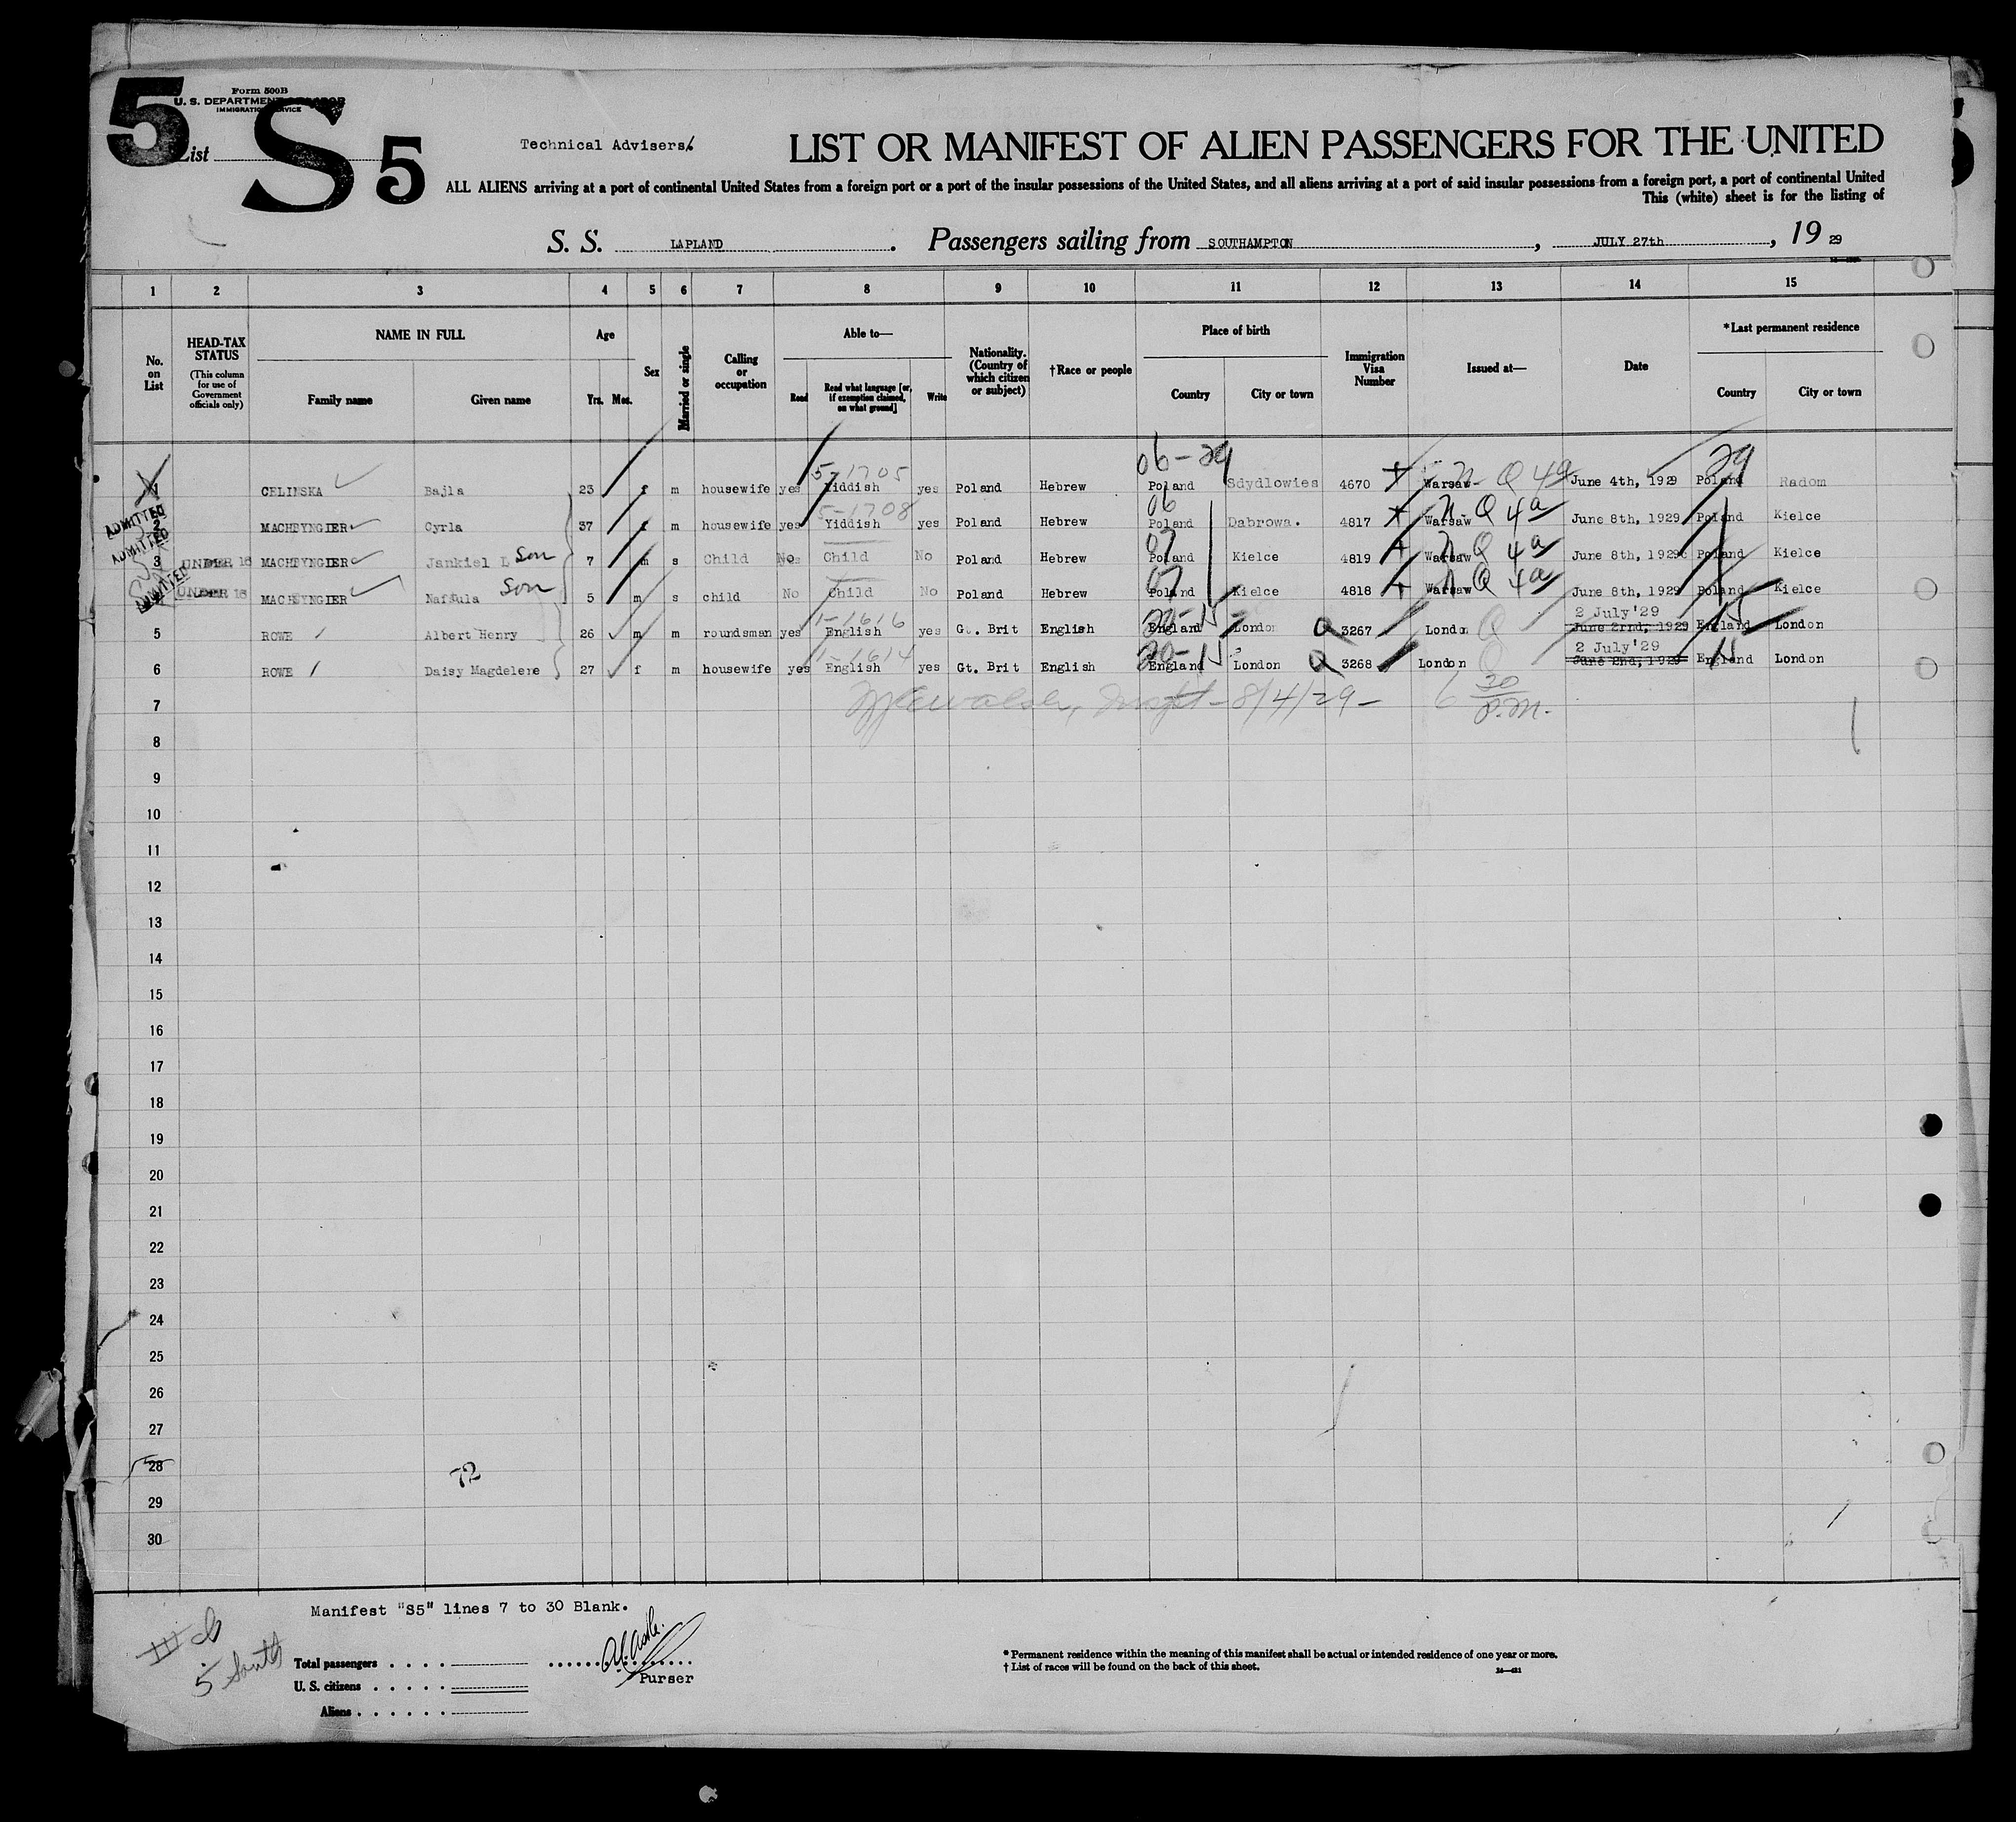 5
Form 500B
U. S. DEPARTMENT OF LABOR
IMMIGRATION SERVICE
List
S 5
Technical Advisers
LIST OR MANIFEST OF ALIEN PASSENGERS FOR THE UNITED
ALL ALIENS arriving at a port of continental United States from a foreign port or a port of the insular possessions of the United States, and all aliens arriving at a port of said insular possessions from a foreign port, a port of continental United
This (white) sheet is for the listing of
S. S. LAPLAND. Passengers sailing from SOUTHAMPTON, JULY 27th, 19 29
1 2 3 4 5 6 7 8 9 10 11 12 13 14 15
No. on List
HEAD-TAX STATUS (This column for use of Government officials only)
NAME IN FULL
Family name Given name
Age
Yrs. Mos.
Sex
Married or single
Calling or occupation
Able to—
Read
Read what language [or, if exemption claimed, on what ground]
Write
Nationality. (Country of which citizen or subject)
†Race or people
Place of birth
Country City or town
Immigration Visa Number
Issued at—
Date
*Last permanent residence
Country City or town
06-29 29
5-1705
1 CELINSKA Bajla 23 f m housewife yes Yiddish yes Poland Hebrew Poland Sdydlowies 4670 Warsaw Q June 4th, 1929 Poland Radom
ADMITTED 5-1708 06
2 MACHTYNGIER Cyrla 37 f m housewife yes Yiddish yes Poland Hebrew Poland Dabrowa. 4817 Warsaw Q 4a June 8th, 1929 Poland Kielce
ADMITTED 07
3 UNDER 16 MACHTYNGIER Jankiel L Son 7 m s Child No Child No Poland Hebrew Poland Kielce 4819 Warsaw Q 4a June 8th, 1929 Poland Kielce
ADMITTED 07
UNDER 16 MACHTYNGIER Naftula Son 5 m s child No Child No Poland Hebrew Poland Kielce 4818 Warsaw Q 4a June 8th, 1929 Poland Kielce
1-1616 15 2 July'29
5 ROWE Albert Henry 26 m m roundsman yes English yes Gt. Brit English England London 3267 London Q June 22nd, 1929 England London
1-1614 20-15 2 July'29
6 ROWE Daisy Magdelene 27 f m housewife yes English yes Gt. Brit English England London 3268 London Q June 2nd, 1929 England London
7 8/4/29- 6 30 P.M.
8
9
10
11
12
13
14
15
16
17
18
19
20
21
22
23
24
25
26
27
28 72
29
30
Manifest "S5" lines 7 to 30 Blank.
5 South
Total passengers
U. S. citizens
Aliens
Purser
* Permanent residence within the meaning of this manifest shall be actual or intended residence of one year or more.
† List of races will be found on the back of this sheet.